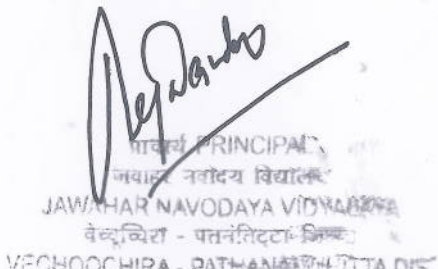 प्राचार्य PRINCIPAL
जवाहर नवोदय विद्यालय
JAWAHAR NAVODAYA VIDYALAYA
वेच्चूच्चिरा - पत्तनंतिट्टा जिला
VECHOOCHIRA - PATHANAMTHITTA DIS